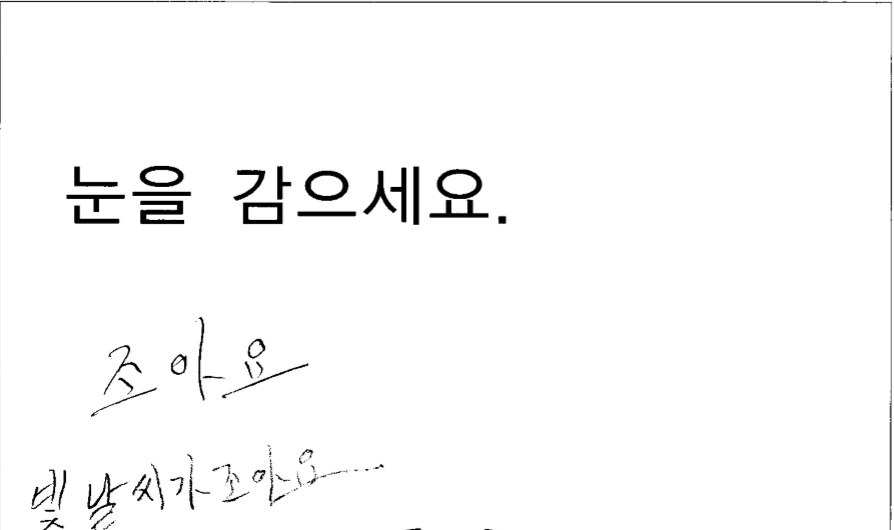 눈을 감으세요.
조아요
빛 날씨가조아요